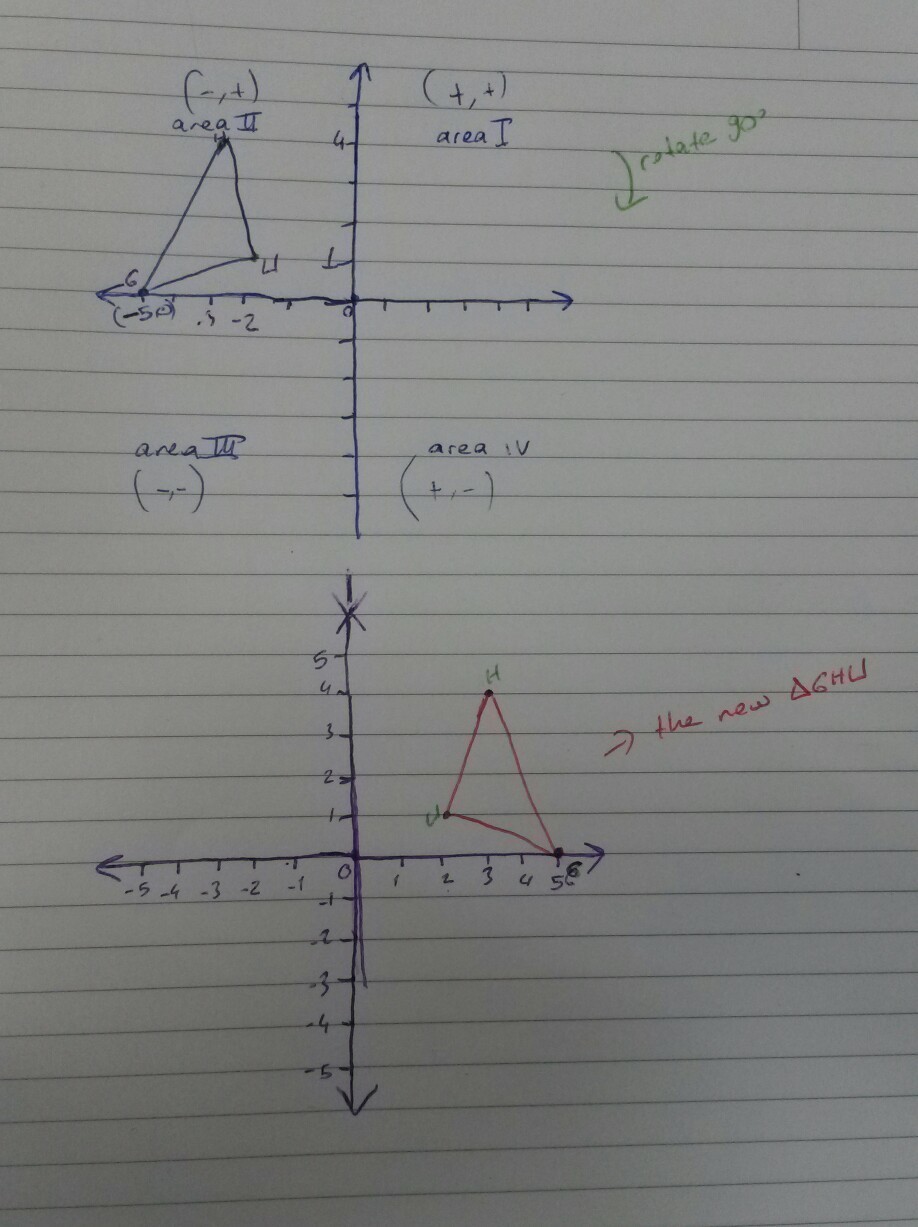 (-,+)
(+,+)
area II
area I
rotate 90°
H
4
G
U
1
(-5,0)
-3
-2
0
area III
area IV
(-,-)
(+,-)
5
H
4
the new ΔGHU
3
2
U
1
-5 -4 -3 -2 -1 0 1 2 3 4 5 G
-1
-2
-3
-4
-5